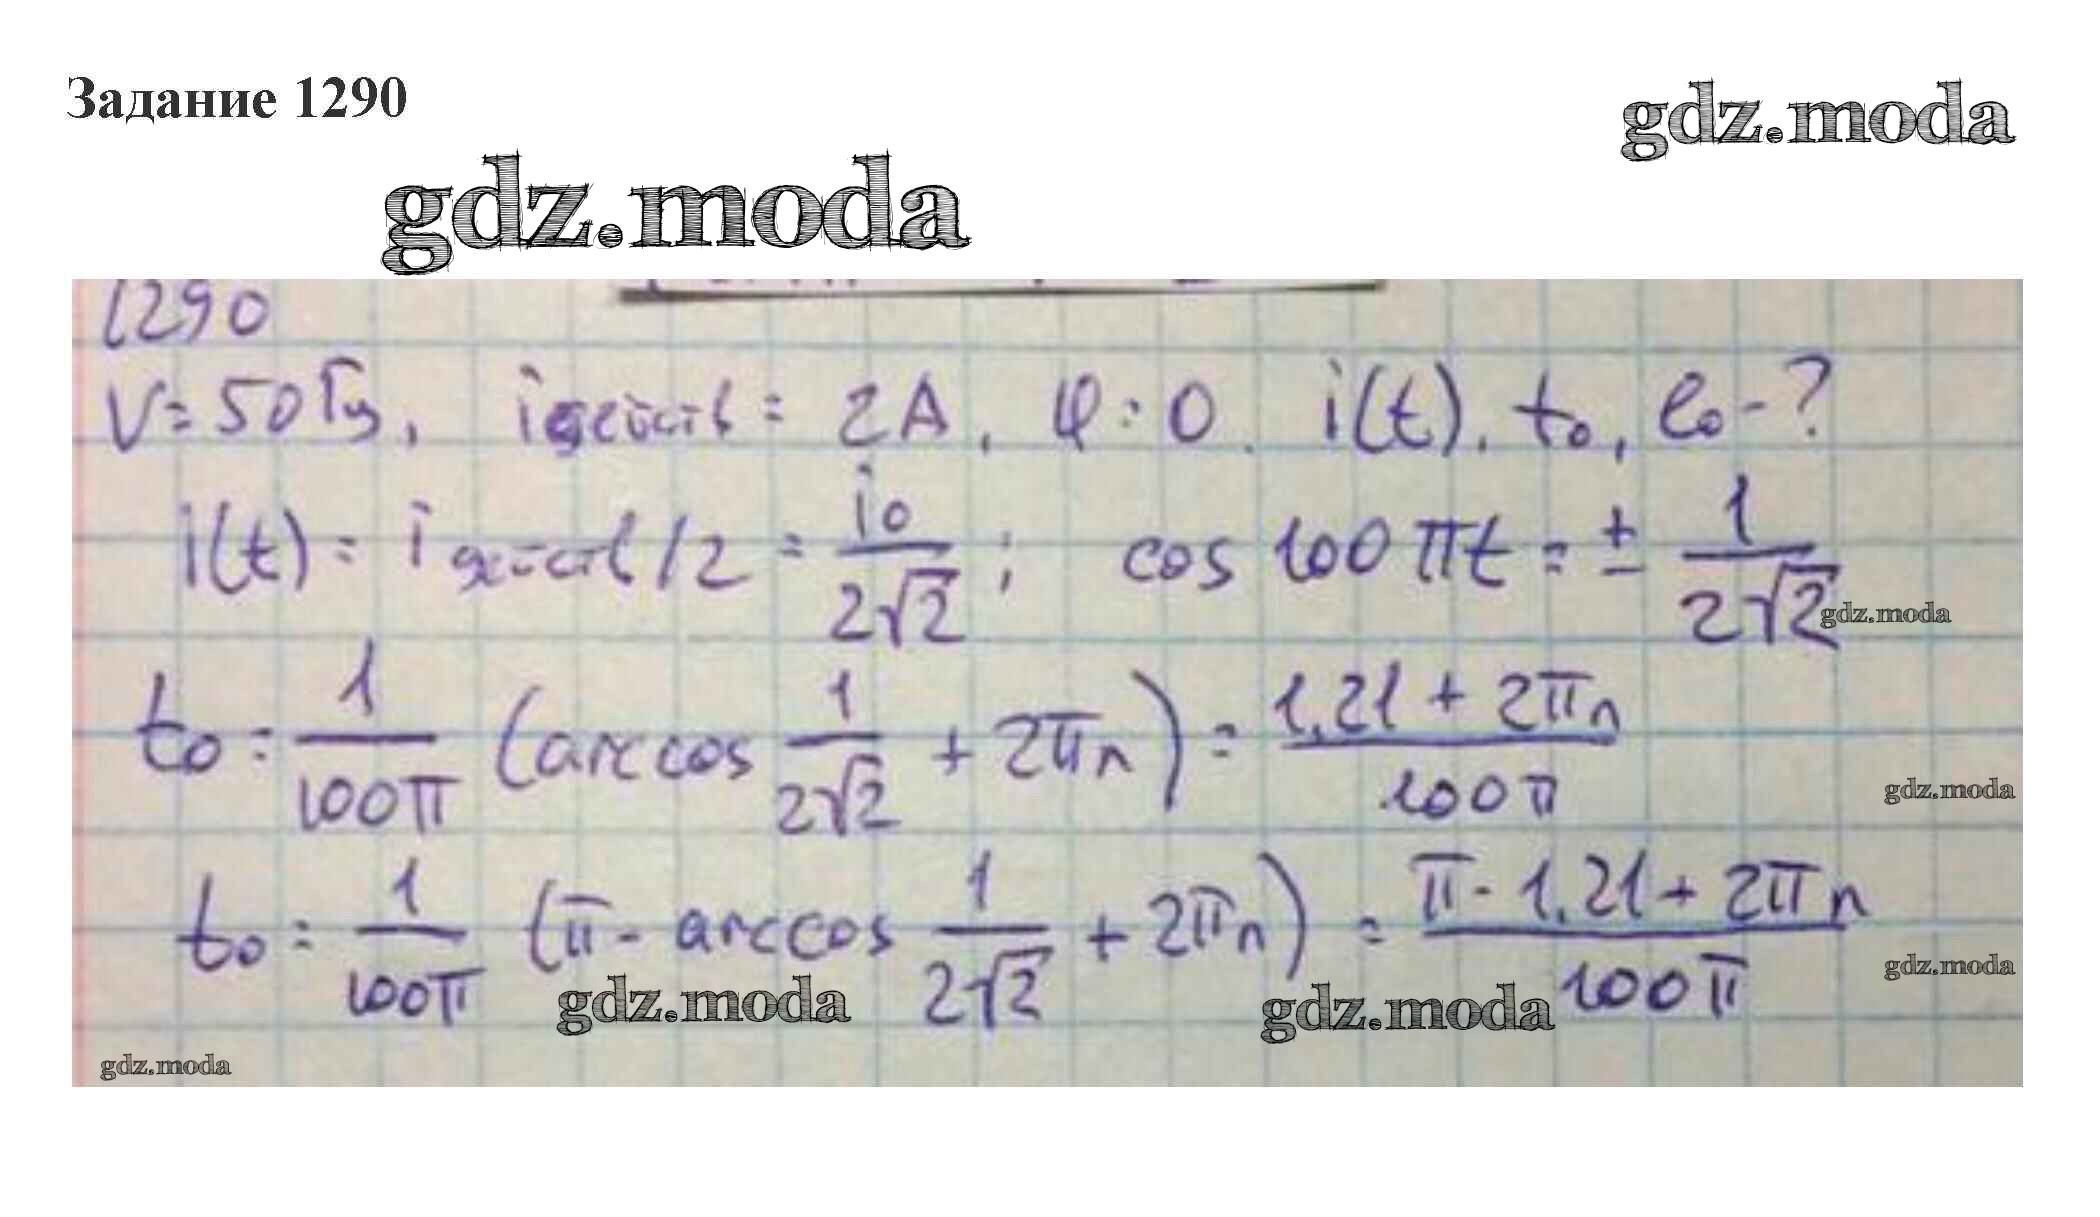 Задание 1290
gdz.moda
gdz.moda
1290
ν = 50 Гц, i действ = 2А, φ = 0. i(t), t₀, e₀ - ?
i(t) = i действ/2 = i₀/(2√2) ; cos 100πt = ± 1/(2√2)
gdz.moda
t₀ = 1/(100π) (arccos 1/(2√2) + 2πn) = (1,21 + 2πn)/(100π)
gdz.moda
t₀ = 1/(100π) (π - arccos 1/(2√2) + 2πn) = (π - 1,21 + 2πn)/(100π)
gdz.moda
gdz.moda
gdz.moda
gdz.moda